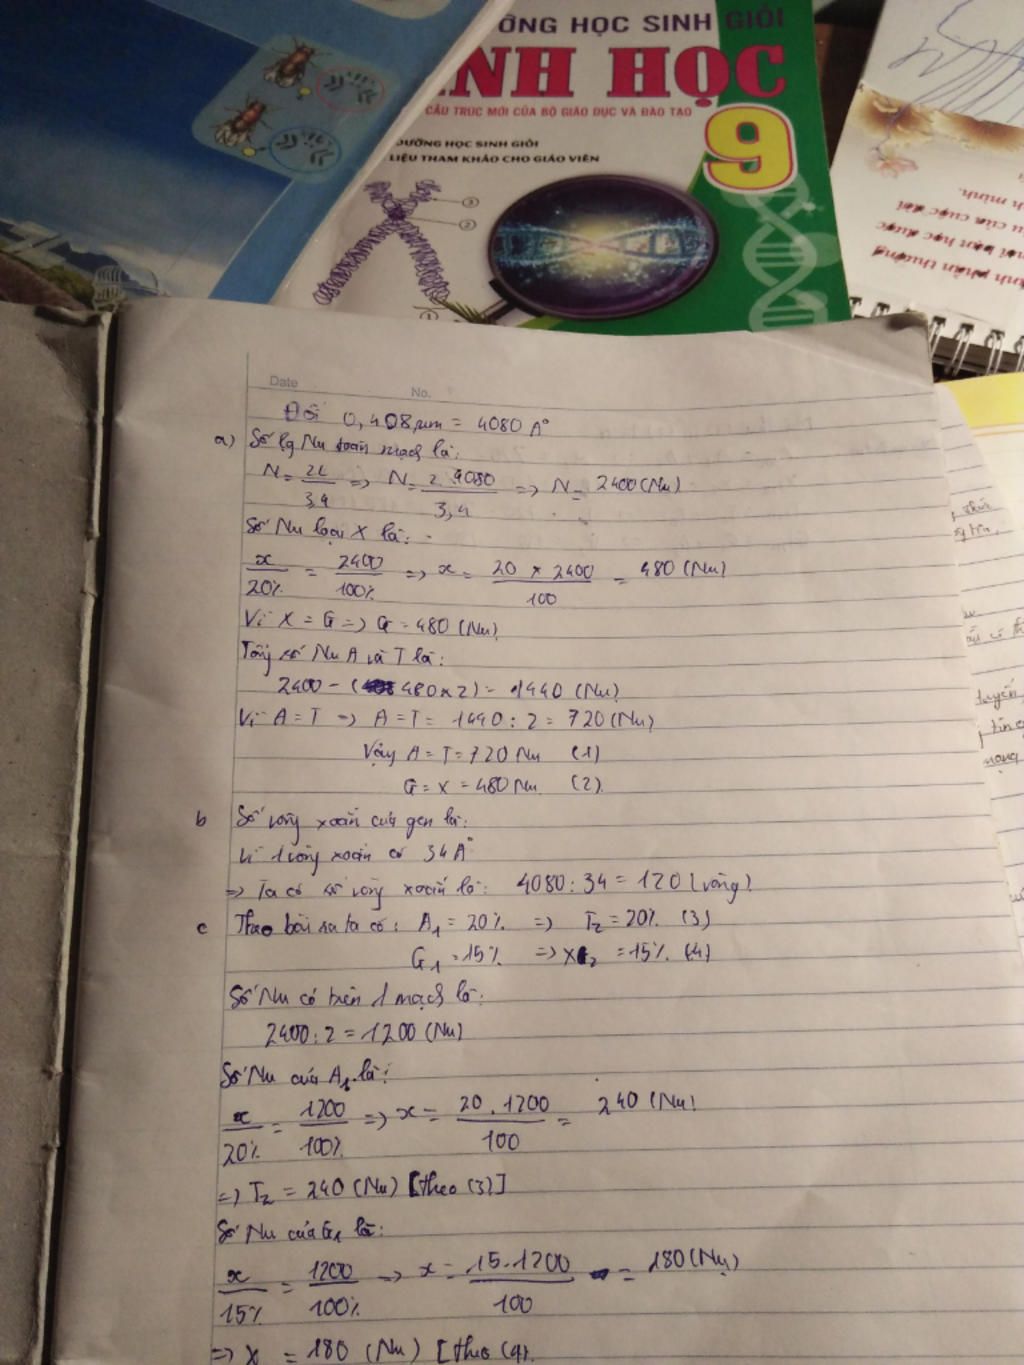 ỠNG HỌC SINH GIỎI
INH HỌC
CẤU TRÚC MỚI CỦA BỘ GIÁO DỤC VÀ ĐÀO TẠO
9
DƯỠNG HỌC SINH GIỎI
LIỆU THAM KHẢO CHO GIÁO VIÊN
3
2
1
Date No.
Đổi 0,408 µm = 4080 A°
a) Số lg Nu toàn mạch là:
N = 2L / 3,4 => N = 2.4080 / 3,4 => N = 2400 (Nu)
Số Nu loại X là:
x / 20% = 2400 / 100% => x = 20 x 2400 / 100 = 480 (Nu)
Vì X = G => G = 480 (Nu)
Tổng số Nu A và T là:
2400 - (480 x 2) = 1440 (Nu)
Vì A = T => A = T = 1440 : 2 = 720 (Nu)
Vậy A = T = 720 Nu (1)
G = X = 480 Nu (2)
b Số vòng xoắn của gen là:
Vì 1 vòng xoắn có 34 A°
=> Ta có số vòng xoắn là: 4080 : 34 = 120 (vòng)
c Theo bài ra ta có: A1 = 20% => T2 = 20% (3)
G1 = 15% => X2 = 15% (4)
Số Nu có trên 1 mạch là:
2400 : 2 = 1200 (Nu)
Số Nu của A1 là:
x / 20% = 1200 / 100% => x = 20 . 1200 / 100 = 240 (Nu)
=> T2 = 240 (Nu) [theo (3)]
Số Nu của G1 là:
x / 15% = 1200 / 100% => x = 15 . 1200 / 100 = 180 (Nu)
=> X = 180 (Nu) [theo (4)